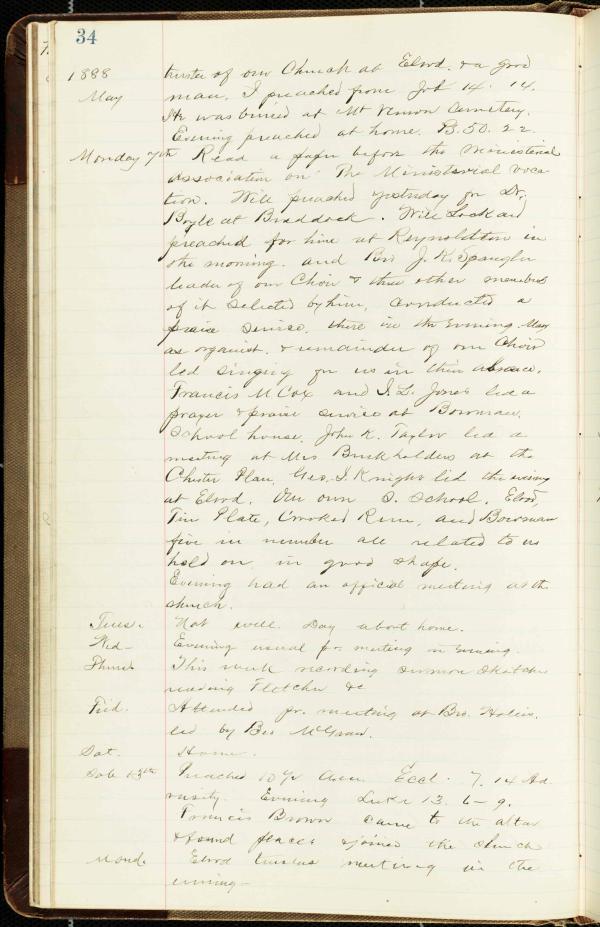 34
1888 trustee of our Church at Elrod. & a good
May man. I preached from Job 14. 14.
He was buried at Mt Vernon Cemetery.
Evening preached at home. 50. 22
Monday 7th Read a paper before the Ministerial
Association on The Ministerial Voca
tion. Will preached yesterday for Dr.
Boyle at Braddock. Will Lockard
preached for him at Reynoldton in
the morning. and Bro J. K. Spangler
leader of our Choir & three other members
of it selected by him, conducted a
praise service. there in the evening. May
as organist. & remainder of our Choir
led singing for us in their absence.
Francis M Cox and I. L. Jones led a
prayer & praise service at Bowman
School house. John K. Taylor led a
meeting at Mrs Burkholders at the
Chester Plan, Geo. I. Knight led the evening
at Elrod. Our own S. School, Elrod,
Tin Plate, Crooked Run, and Bowman
five in number all related to us
hold on in good shape.
Evening had an official meeting at the
church.
Tues. Not well. Day about home.
Wed- Evening usual pr. meeting in evening.
Thurs. This week recording sermon sketches
reading Fletcher &c
Frid. Attended pr. meeting at Bro.
led by Bro McGraw.
Sat. Home.
Sab 13th Preached 10 1/2 Eccl. 7. 14 Ad
versity. Evening Luke 13. 6-9.
Francis Brown came to the altar
& found peace & joined the church
Mond. Elrod meeting in the
evening-